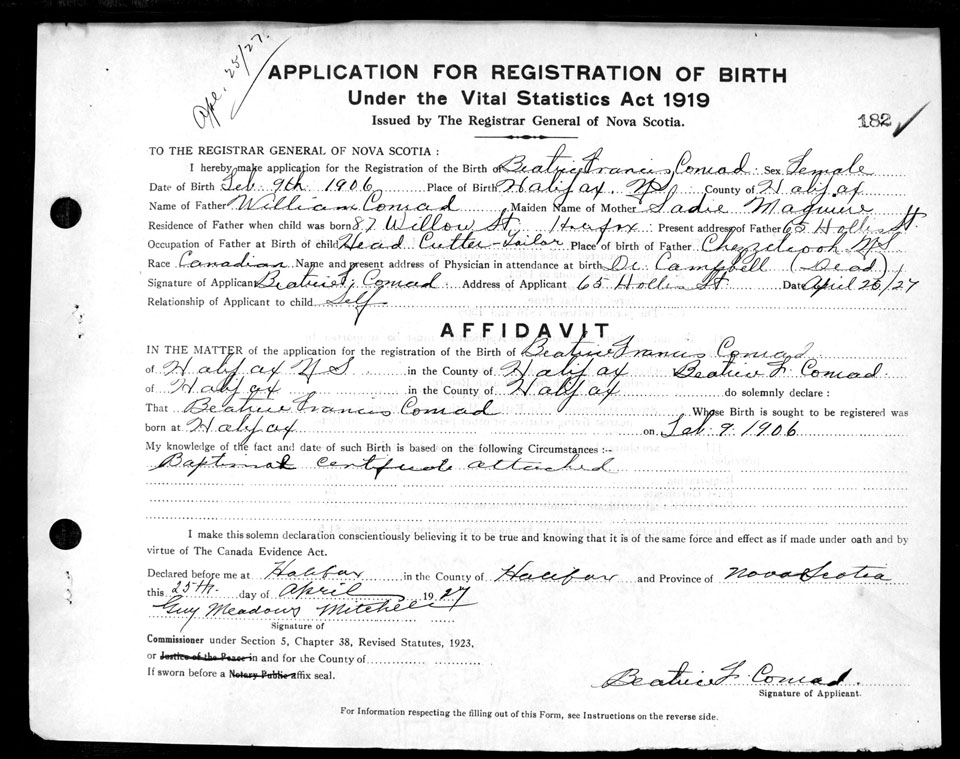 Apl. 25/27.
APPLICATION FOR REGISTRATION OF BIRTH
Under the Vital Statistics Act 1919
Issued by The Registrar General of Nova Scotia.
182
TO THE REGISTRAR GENERAL OF NOVA SCOTIA :
I hereby make application for the Registration of the Birth of Beatrice Francis Conrad Sex Female
Date of Birth Feb 9th 1906 Place of Birth Halifax, NS County of Halifax
Name of Father William Conrad Maiden Name of Mother Sadie Maguire
Residence of Father when child was born 87 Willow St, Halifax Present address of Father 65 Hollis St.
Occupation of Father at Birth of child Head Cutter-Tailor Place of birth of Father Chezzetcook NS
Race Canadian Name and present address of Physician in attendance at birth Dr Campbell (Dead)
Signature of Applicant Beatrice F. Conrad Address of Applicant 65 Hollis St Date April 25/27
Relationship of Applicant to child Self
AFFIDAVIT
IN THE MATTER of the application for the registration of the Birth of Beatrice Francis Conrad
of Halifax NS in the County of Halifax Beatrice F. Conrad
of Halifax in the County of Halifax do solemnly declare :
That Beatrice Francis Conrad Whose Birth is sought to be registered was
born at Halifax on Feb. 9. 1906
My knowledge of the fact and date of such Birth is based on the following Circumstances :--
Baptismal certificate attached
I make this solemn declaration conscientiously believing it to be true and knowing that it is of the same force and effect as if made under oath and by
virtue of The Canada Evidence Act.
Declared before me at Halifax in the County of Halifax and Province of Nova Scotia
this 25th. day of April 1927
Guy Meadows Mitchell
Signature of
Commissioner under Section 5, Chapter 38, Revised Statutes, 1923,
or Justice of the Peace in and for the County of
If sworn before a Notary Public affix seal.
Beatrice F. Conrad.
Signature of Applicant.
For Information respecting the filling out of this Form, see Instructions on the reverse side.